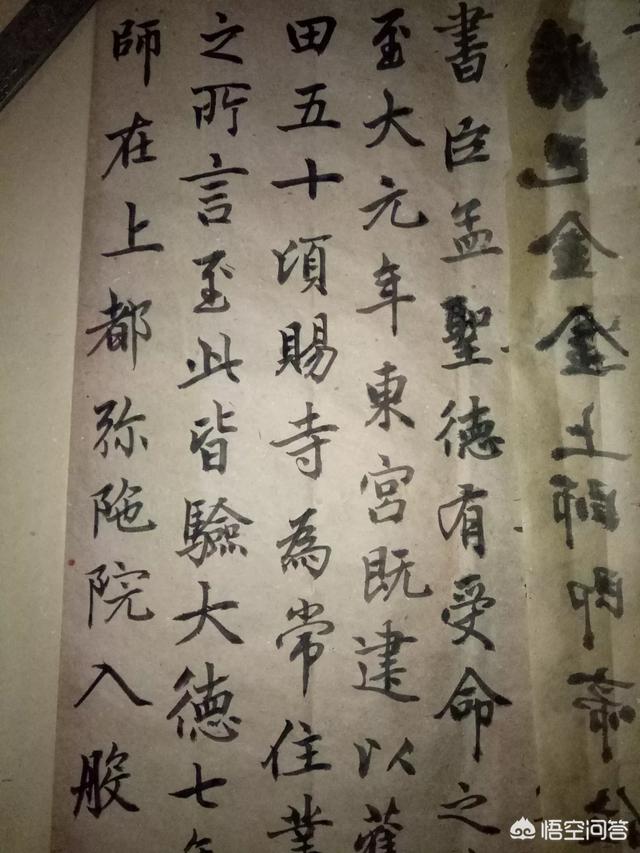 金金上師即帝
書臣孟聖德有受命之
至大元年東宮既建以舊
田五十頃賜寺為常住業
之所言至此皆驗大德七年
師在上都弥陁院入般
悟空问答